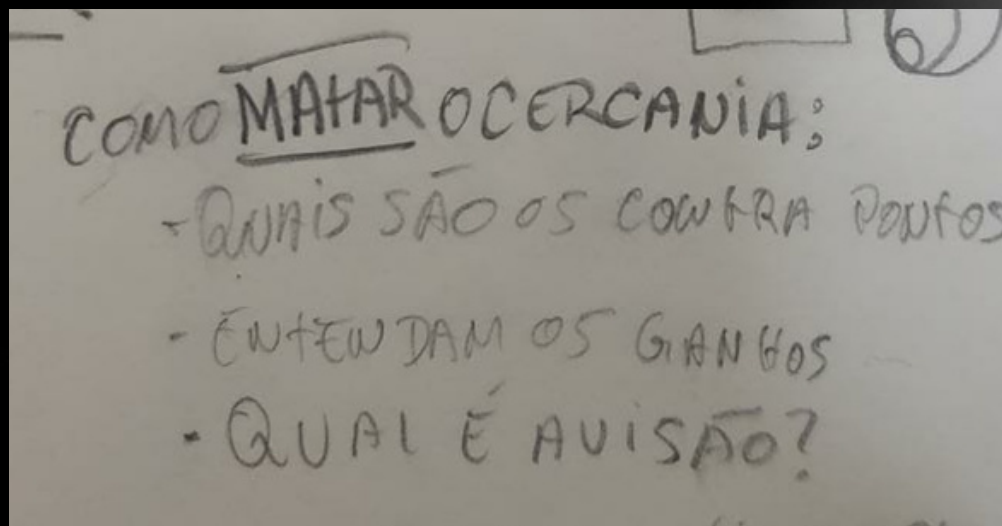 COMO MATAR O CERCANIA:
- QUAIS SÃO OS CONTRA PONTOS
- ENTENDAM OS GANHOS
- QUAL É A VISÃO?